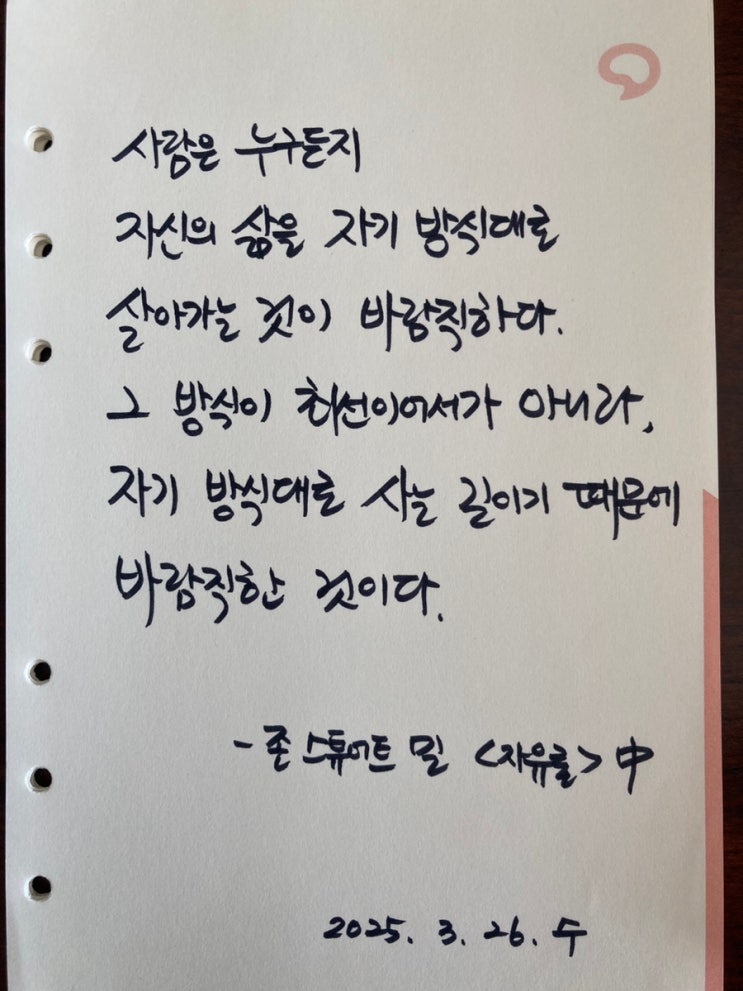 사람은 누구든지
자신의 삶을 자기 방식대로
살아가는 것이 바람직하다.
그 방식이 최선이어서가 아니라,
자기 방식대로 사는 길이기 때문에
바람직한 것이다.
- 존 스튜어트 밀 <자유론> 中
2025. 3. 26. 수